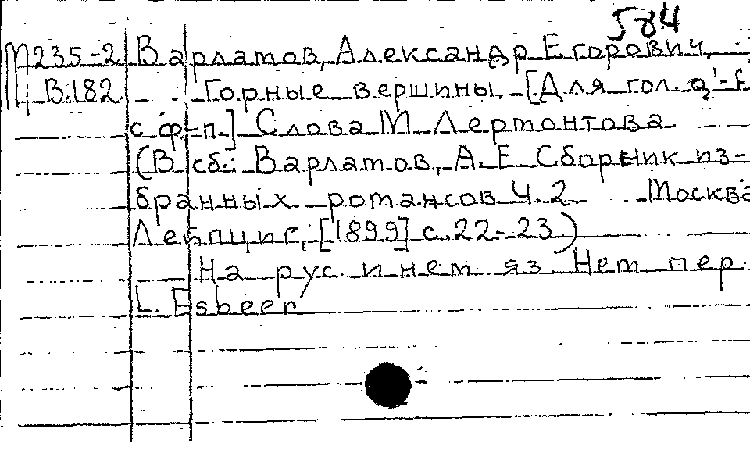 584
М235-2 Варламов, Александр Егорович.
В.182 Горные вершины. [Для гол. a'-f
с ф-п.] Слова М. Лермонтова
(В сб.: Варламов, А. Е. Сборник из-
бранных романсов Ч. 2 Москва
Лейпциг, [1899] с. 22-23)
На рус. и нем яз. Нем пер.
L. Esbeer